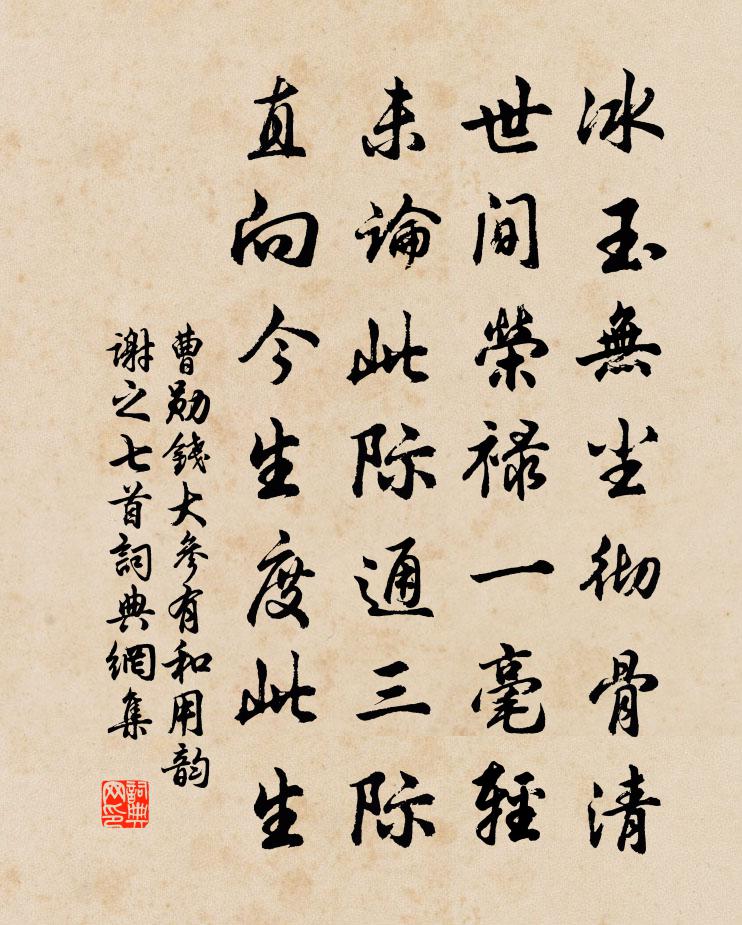 冰玉無尘彻骨清
世間榮禄一毫輕
未論此际通三际
直向今生度此生
曹勋錢大參有和用韵
謝之七首詞典網集
詞典网印